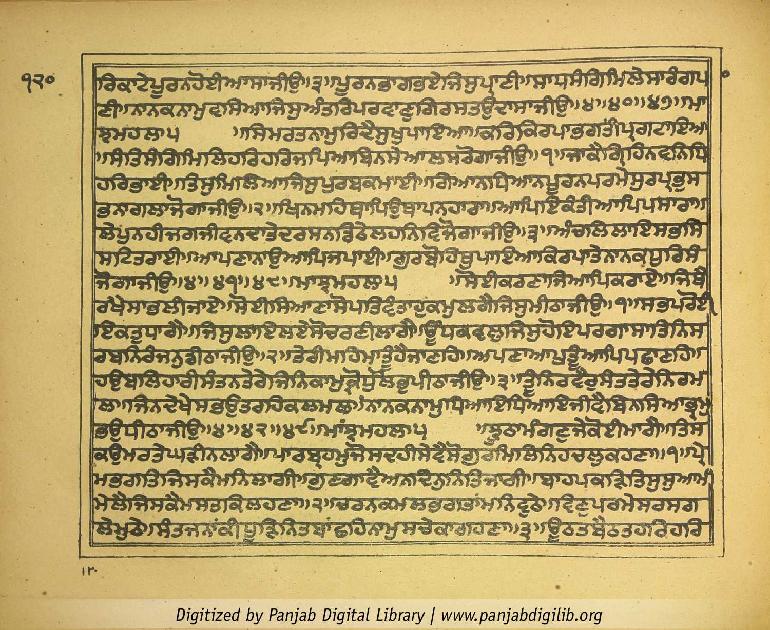 ੧੨੦
ਰਿਕਾਟੇਪੂਰਨਹੋਈਆਸਾਜੀਉ॥੩॥ਪੂਰਨਭਾਗਭਏਜਿਸੁਪ੍ਰਾਣੀ॥ਸਾਧਸੰਗਿਮਿਲੇਸਾਰੰਗਪ
ਣੀ॥ਨਾਨਕਨਾਮੁਵਸਿਆਜਿਸੁਅੰਤਰਿਪਰਵਾਣੁਗਿਰਸਤਉਦਾਸਾਜੀਉ॥੪॥੪੦॥੪੭॥ਮਾ
ਝਮਹਲਾ੫ ॥ਸਿਮਰਤਨਾਮੁਰਿਦੈਸੁਖੁਪਾਇਆ॥ਕਰਿਕਿਰਪਾਭਗਤੀਪ੍ਰਗਟਾਇਆ
॥ਸੰਤਸੰਗਿਮਿਲਿਹਰਿਹਰਿਜਪਿਆਬਿਨਸੇਆਲਸਰੋਗਾਜੀਉ॥੧॥ਜਾਕੈਗ੍ਰਿਹਿਨਵਨਿਧਿ
ਹਰਿਭਾਈ॥ਤਿਸੁਮਿਲਿਆਜਿਸੁਪੁਰਬਕਮਾਈ॥ਗਿਆਨਧਿਆਨਪੂਰਨਪਰਮੇਸੁਰਪ੍ਰਭੁਸ
ਭਨਾਗਲਾਜੋਗਾਜੀਉ॥੨॥ਖਿਨਮਹਿਥਾਪਿਉਥਾਪਨਹਾਰਾ॥ਆਪਿਇਕੰਤੀਆਪਿਪਸਾਰਾ॥
ਲੇਪੁਨਹੀਜਗਜੀਵਨਦਾਤੇਦਰਸਨਡਿਠੇਲਹਨਿਵਿਜੋਗਾਜੀਉ॥੩॥ਅੰਚਲਿਲਾਇਸਭਸਿ
ਸਟਿਤਰਾਈ॥ਆਪਣਾਨਾਉਆਪਿਜਪਾਈ॥ਗੁਰਬੋਹਿਥੁਪਾਇਆਕਿਰਪਾਤੇਨਾਨਕਧੁਰਿਸੰ
ਜੋਗਾਜੀਉ॥੪॥੪੧॥੪੮॥ਮਾਝਮਹਲਾ੫ ॥ਸੋਈਕਰਣਾਜਿਆਪਿਕਰਾਏ॥ਜਿਥੈ
ਰਖੈਸਾਭਲੀਜਾਏ॥ਸੋਈਸਿਆਣਾਸੋਪਤਿਵੰਤਾਹੁਕਮੁਲਗੈਜਿਸੁਮੀਠਾਜੀਉ॥੧॥ਸਭਪਰੋਈ
ਇਕਤੁਧਾਗੈ॥ਜਿਸੁਲਾਇਲਏਸੋਚਰਣੀਲਾਗੈ॥ਊਂਧਕਵਲੁਜਿਸੁਹੋਇਪਰਗਾਸਾਤਿਨਿਸ
ਰਬਨਿਰੰਜਨੁਡੀਠਾਜੀਉ॥੨॥ਤੇਰੀਮਹਿਮਾਤੂੰਹੈਜਾਣਹਿ॥ਅਪਣਾਆਪੁਤੂੰਆਪਿਪਛਾਣਹਿ॥
ਹਉਬਲਿਹਾਰੀਸੰਤਨਤੇਰੇਜਿਨਿਕਾਮੁਕ੍ਰੋਧੁਲੋਭੁਪੀਠਾਜੀਉ॥੩॥ਤੂੰਨਿਰਵੈਰੁਸੰਤਤੇਰੇਨਿਰਮ
ਲ॥ਜਿਨਦੇਖੇਸਭਉਤਰਹਿਕਲਮਲ॥ਨਾਨਕਨਾਮੁਧਿਆਇਧਿਆਇਜੀਵੈਬਿਨਸਿਆਭ੍ਰਮੁ
ਭਉਧੀਠਾਜੀਉ॥੪॥੪੨॥੪੯॥ਮਾਂਝਮਹਲਾ੫ ॥ਝੂਠਾਮੰਗਣੁਜੇਕੋਈਮਾਗੈ॥ਤਿਸ
ਕਉਮਰਤੇਘੜੀਨਲਾਗੈ॥ਪਾਰਬ੍ਰਹਮੁਜੋਸਦਹੀਸੇਵੈਸੋਗੁਰਮਿਲਿਨਿਹਚਲੁਕਹਣਾ॥੧॥ਪ੍ਰੇ
ਮਭਗਤਿਜਿਸਕੈਮਨਿਲਾਗੀ॥ਗੁਣਗਾਵੈਅਨਦਿਨੁਨਿਤਿਜਾਗੀ॥ਬਾਹਪਕੜਿਤਿਸੁਸੁਆਮੀ
ਮੇਲੈਜਿਸਕੈਮਸਤਕਿਲਹਣਾ॥੨॥ਚਰਨਕਮਲਭਗਤਾਂਮਨਿਵੁਠੇ॥ਵਿਣੁਪਰਮੇਸਰਸਗ
ਲੇਮੁਠੇ॥ਸੰਤਜਨਾਂਕੀਧੂੜਿਨਿਤਬਾਂਛਹਿਨਾਮੁਸਚੇਕਾਗਹਣਾ॥੩॥ਊਠਤਬੈਠਤਹਰਿਹਰਿ
Digitized by Panjab Digital Library | www.panjabdigilib.org